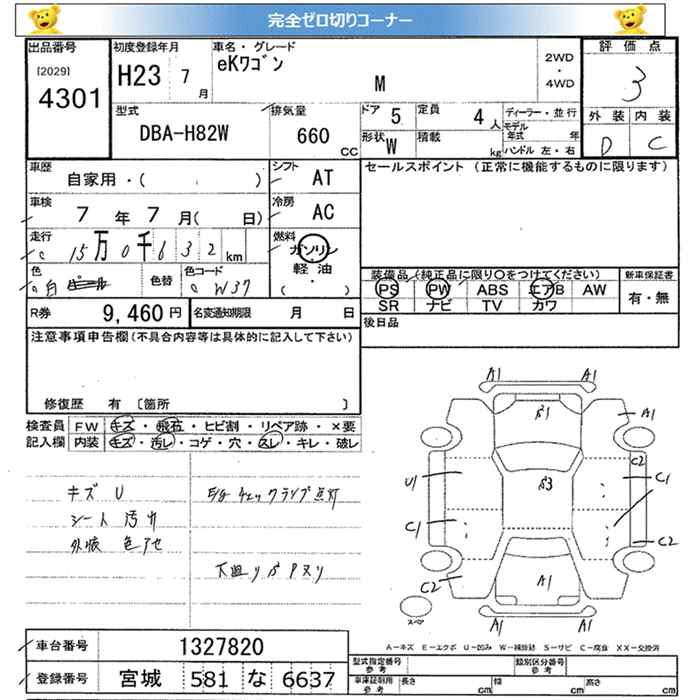 完全ゼロ切りコーナー
出品番号
[2029]
4301
初度登録年月
H23 7 月
車名・グレード
eKワゴン
M
2WD
・
4WD
評価点
3
外装 内装
D C
型式
DBA-H82W
排気量
660 CC
ドア 5
定員 4 人
形状 W
積載 kg
ディーラー・並行
モデル年式 年
ハンドル 左・右
車歴
自家用・( )
シフト
AT
車検
7 年 7 月( 日)
冷房
AC
走行
c 15万0千632 km
燃料
ガソリン
軽油
( ・ )
色
色替
色コード
W37
R券 9,460円
名変通知期限 月 日
セールスポイント (正常に機能するものに限ります)
装備品(純正品に限り○をつけてください)
PS PW ABS エアB AW
SR ナビ TV カワ
新車保証書
有・無
後日品
注意事項申告欄(不具合内容等は具体的に記入して下さい)
修復歴 有 〔箇所 〕
検査員 FW キズ・飛石・ヒビ割・リペア跡・×要
記入欄 内装 キズ・汚レ・コゲ・穴・スレ・キレ・破レ
キズ U
シート汚れ
外板 色アセ
E/gチェックランプ点灯
下廻りパタヌリ
A1 A1
S1
A1
C2
U1
S3
C1
C1
C2
C2
A1
A1 A1
スペア
A-キズ E-エクボ U-凹み W-補修跡 S-サビ C-腐食 XX-交換済
車台番号 1327820
登録番号 宮城 581 な 6637
型式指定番号 参考
類別区分番号 参考
車庫証明用 参考
長さ cm 幅 cm 高さ cm